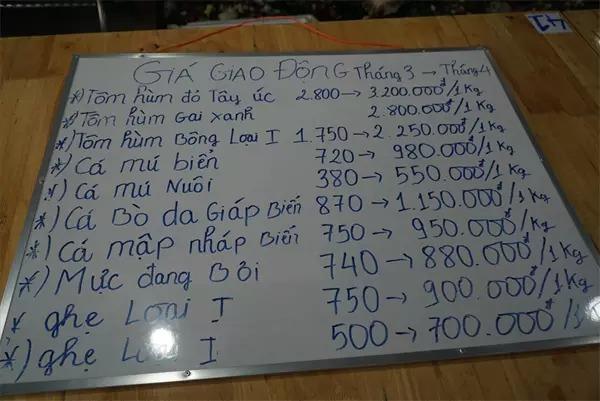 41
GIÁ GIAO ĐỘNG Tháng 3 → Tháng 4
*) Tôm hùm đỏ Tây úc 2.800 → 3.200.000đ/1 Kg
*) Tôm hùm Gai xanh 2.800.000đ/1 Kg
*) Tôm hùm Bông Loại I 1.750 → 2.250.000đ/1 Kg
*) Cá mú biển 720 → 980.000đ/1 Kg
*) Cá mú Nuôi 380 → 550.000đ/1 Kg
*) Cá Bò da Giáp Biển 870 → 1.150.000đ/1 Kg
*) Cá mập nháp Biển 750 → 950.000đ/1 Kg
*) Mực đang Bơi 740 → 880.000đ/1 Kg
* ghẹ Loại I 750 → 900.000đ/1 Kg
*) ghẹ Loại I 500 → 700.000đ/1